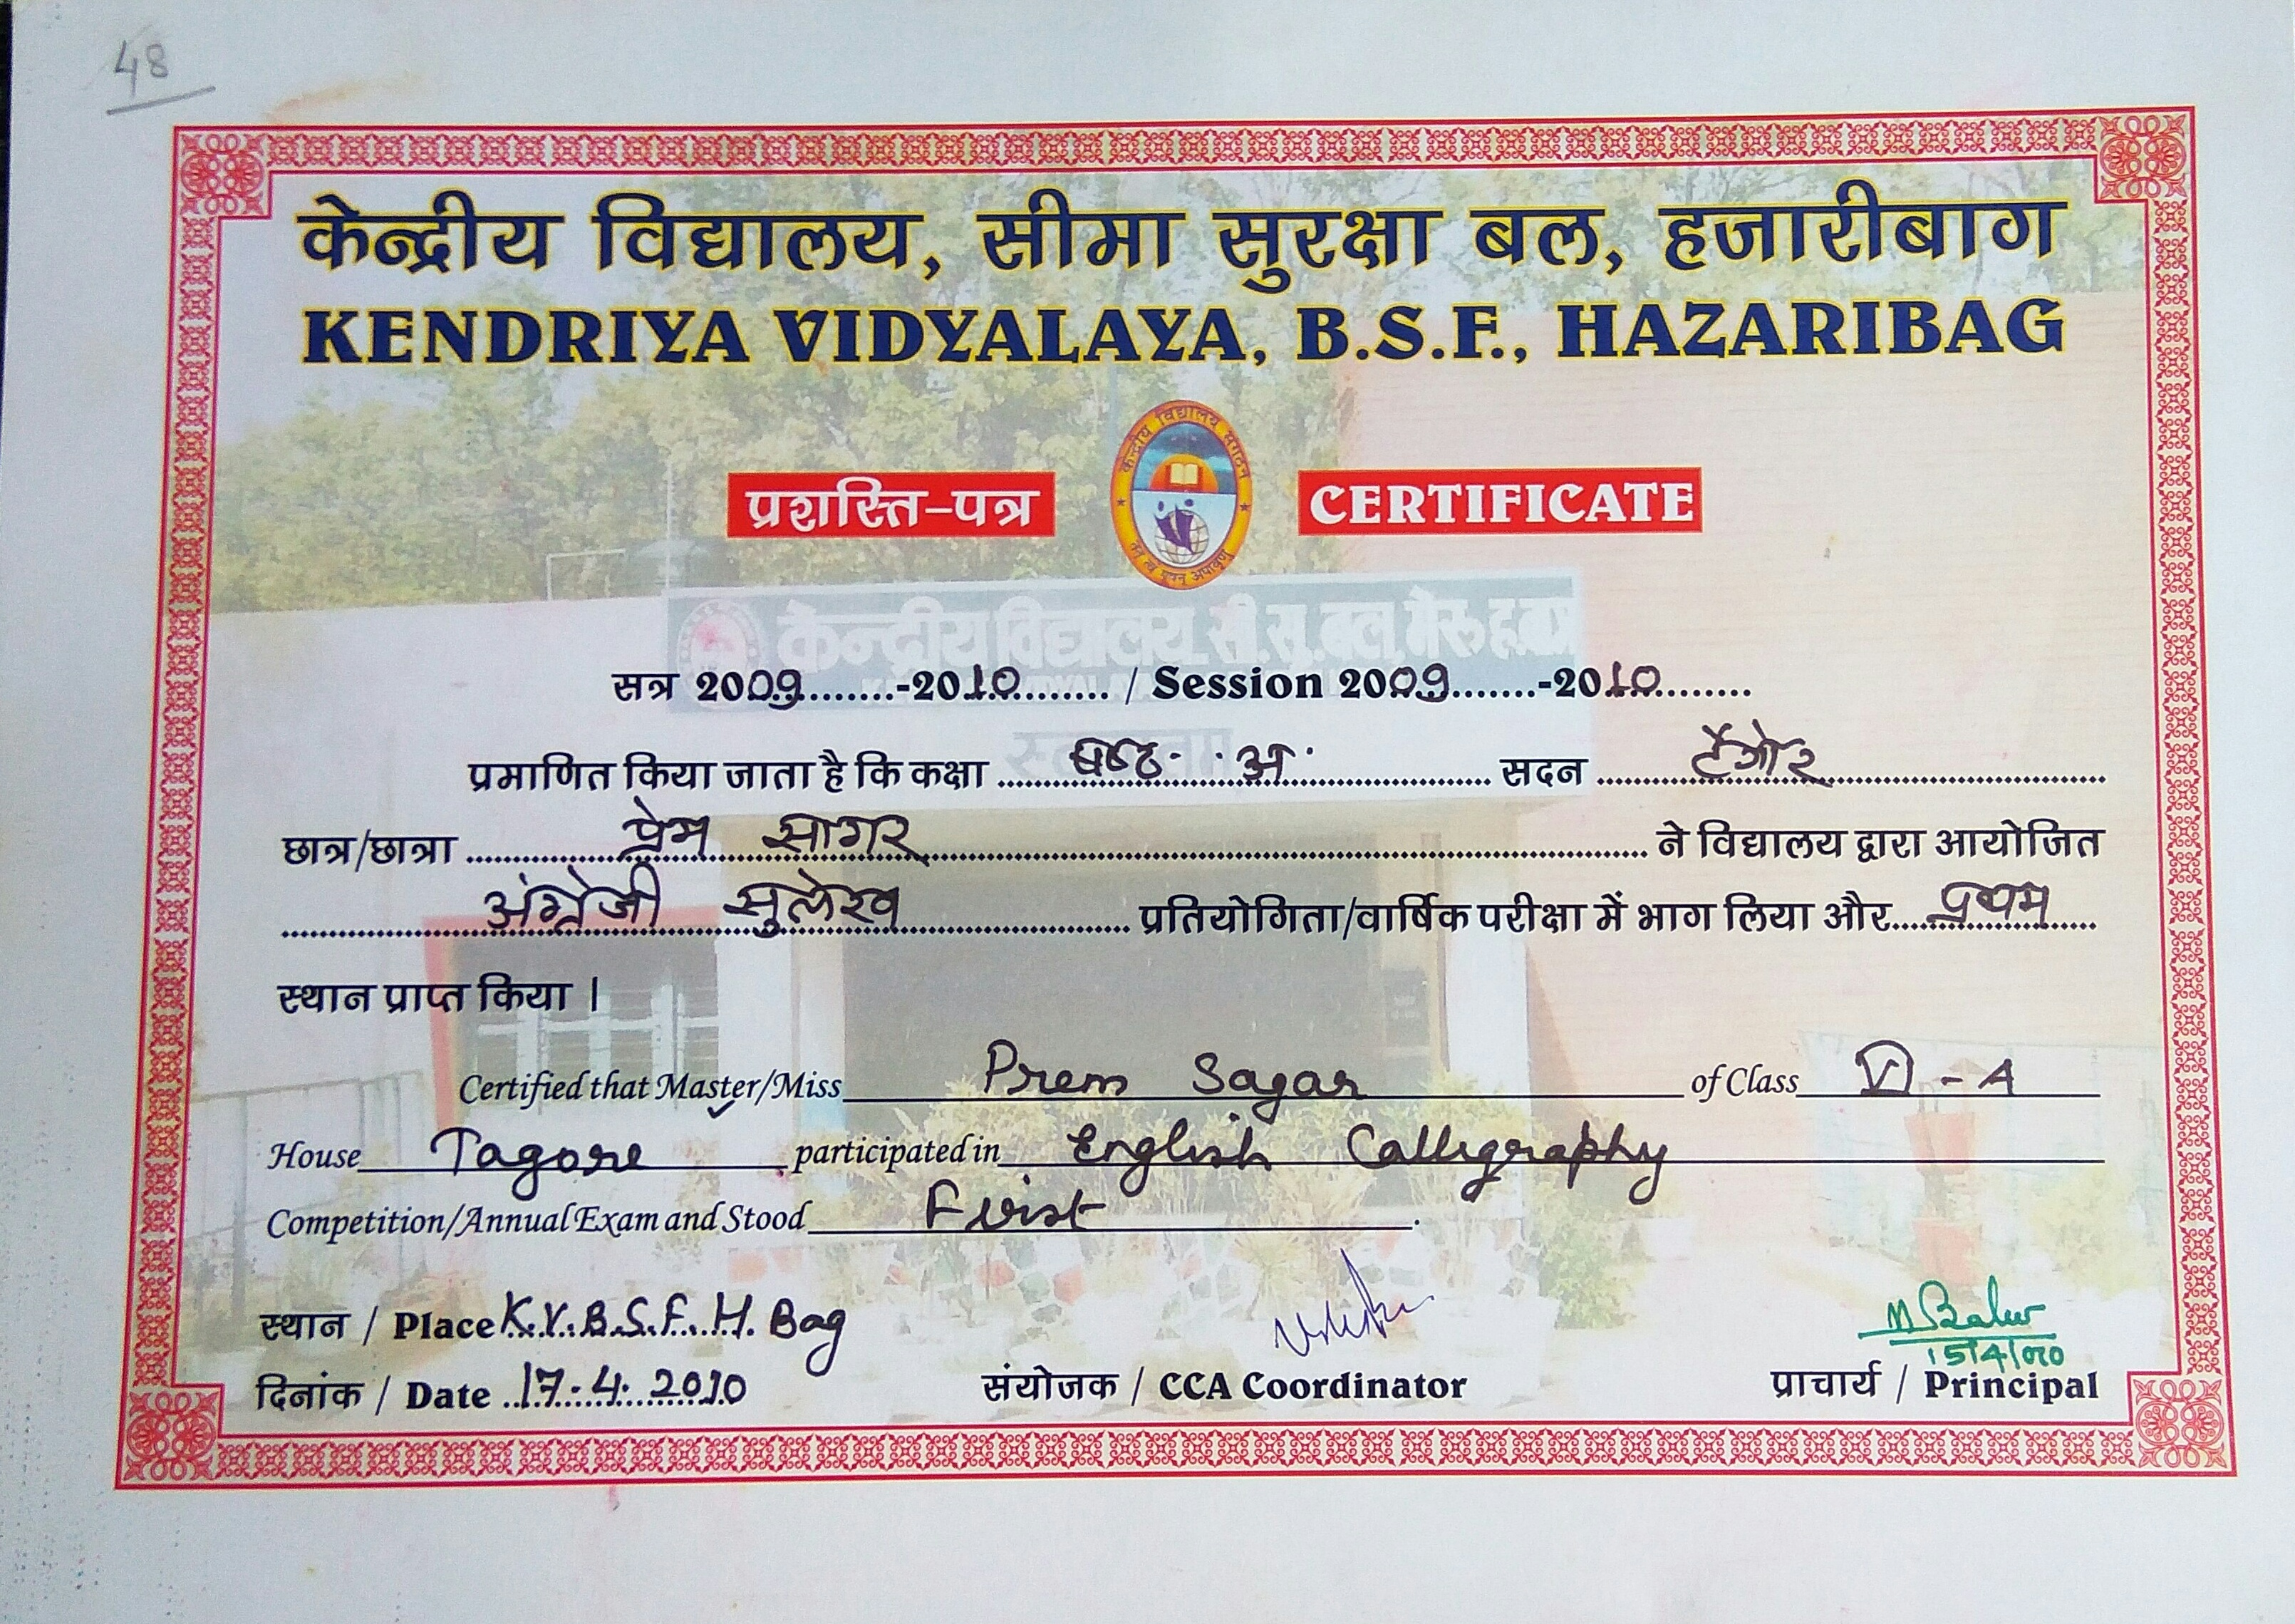 48
केन्द्रीय विद्यालय, सीमा सुरक्षा बल, हजारीबाग
KENDRIYA VIDYALAYA, B.S.F., HAZARIBAG
केन्द्रीय विद्यालय संगठन
प्रशस्ति-पत्र CERTIFICATE
केन्द्रीय विद्यालय सी.सु.बल मेरू
सत्र 2009........-2010......... / Session 2009.......-2010.........
प्रमाणित किया जाता है कि कक्षा षष्ठ - अ सदन टैगोर
छात्र/छात्रा प्रेम सागर ने विद्यालय द्वारा आयोजित
अंग्रेजी सुलेख प्रतियोगिता/वार्षिक परीक्षा में भाग लिया और प्रथम
स्थान प्राप्त किया ।
Certified that Master/Miss Prem Sagar of Class VI - A
House Tagore participated in English Calligraphy
Competition/Annual Exam and Stood First.
स्थान / Place K.V.B.S.F. H. Bag
दिनांक / Date 17.4.2010 संयोजक / CCA Coordinator प्राचार्य / Principal